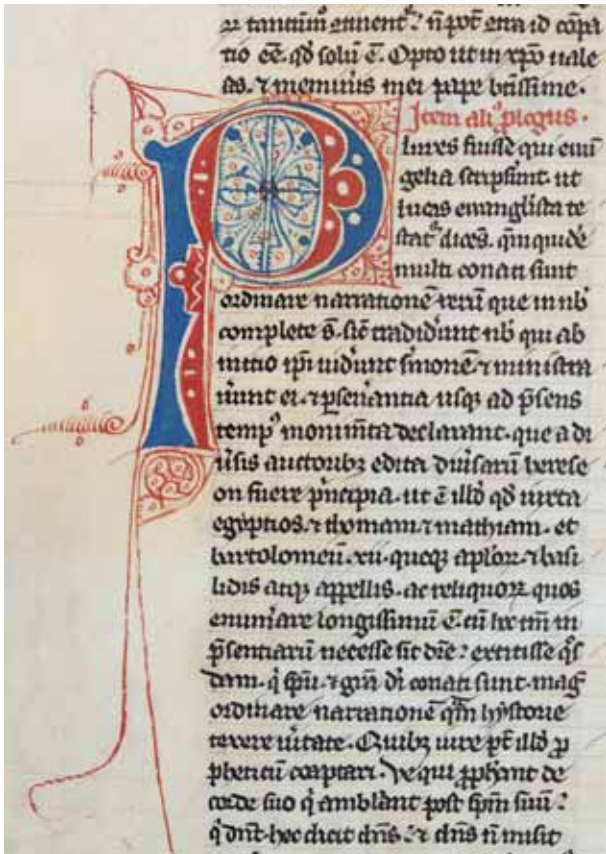 ꝛ tantum̄ euuenit᷑ ? n̄ pōt̄ erra id cōpa
tio ee̅. qd̓ solū ē. Opto ut in xp̄o uale
as. ⁊ meminĩs mei pape btīssime.
Item aliꝰ ꝓlogus.
Plures fuisse qui euuā
gelia scripsunt. ut
lucas ewanglista te
stat᷑ dicēs. qm̄ quidē
multi conati sunt
ordinare narrationē rerū que in nob̓
complete s̄. sic̄ tradidũnt nob̓ qui ab
initio ip̄i uidũnt s̓monē. ⁊ ministra
uũnt ei. ⁊ ꝑseũantia usqꝫ ad p̄sens
tempꝰ monim̄ta declarant. que a di
ũsis auctoribꝫ edita diũsarū herese
on fuere p̓ncipia. ut ē illd̓ qd̓ iuxta
egyptios. ⁊ thomam. ⁊ mathiam. et
bartolomeū. xii. queqꝫ aplōꝝ. ⁊ basi
lidis atqꝫ appellis. ac reliquoꝝ quos
enumãre longissimū ē. cū hec tm̄ in
p̄sentiarū necesse sit dic̄e᷑. extitisse q̓s
dam. q̓ sp̄u. ⁊ gr̄a di̓ conati sunt. mag̓
ordinare narrationē q̄m hystorie
texere uĩtate. Quibꝫ iure pt̄ illd̓ ꝓ
pheticū coaptari. Ve qui ꝓph̃ant de
corde suo q̓ amblãnt post spm̄ suū᷑
q̓ dn̄t. hec dicit dn̄s᷑ ⁊ dn̄s n̄ misit